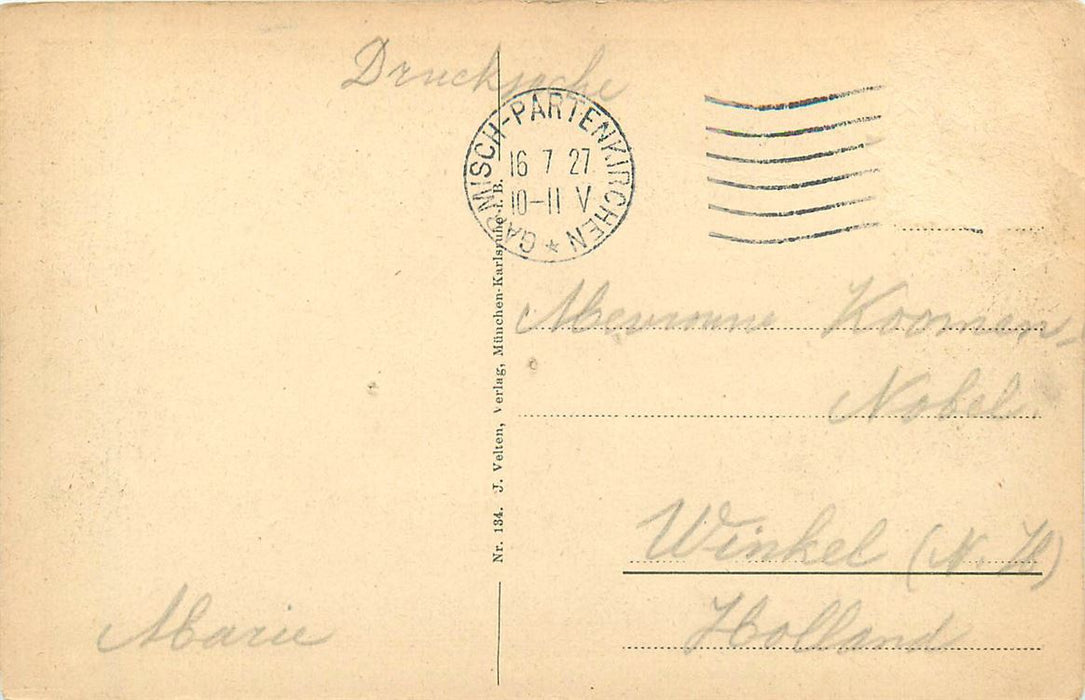 Drucksache
GARMISCH-PARTENKIRCHEN
16 7 27
10-11 V
Nr. 134. J. Velten, Verlag, München-Karlsruhe i. B.
Koomen-
Nobel
Winkel (N. H)
Holland
Marie